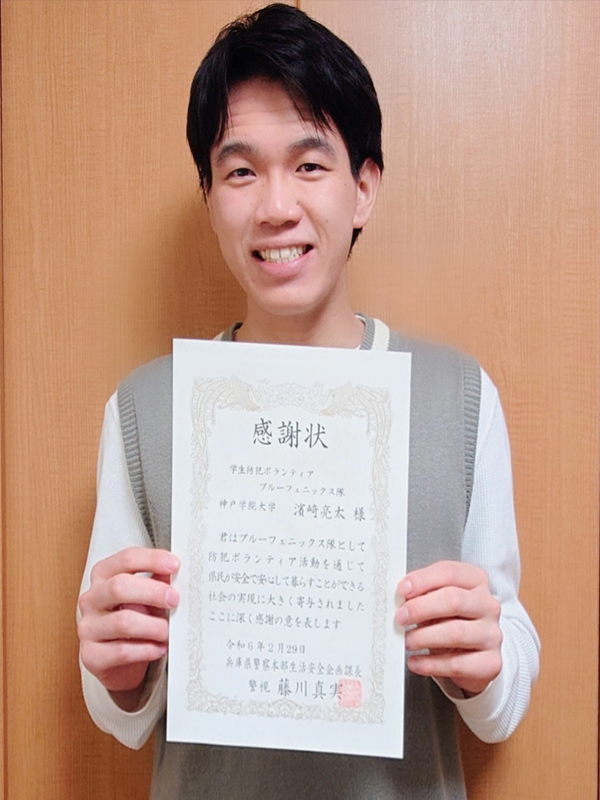 感謝状
学生防犯ボランティア
ブルーフェニックス隊
神戸学院大学 濵﨑亮太 様
君はブルーフェニックス隊として
防犯ボランティア活動を通じて
県民が安全で安心して暮らすことができる
社会の実現に大きく寄与されました
ここに深く感謝の意を表します
令和6年2月29日
兵庫県警察本部生活安全企画課長
警視 藤川真実